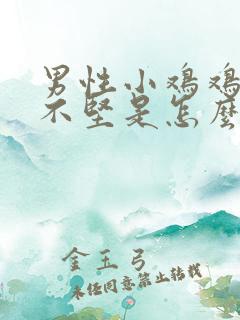 男性小鸡鸡
不坚是怎麽
金玉弓
未经同意禁止转载